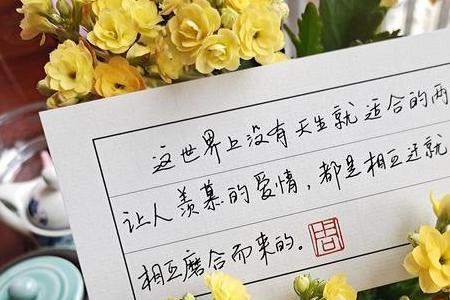 这世界上没有天生就适合的两
让人羡慕的爱情，都是相互迁就
相互磨合而来的。